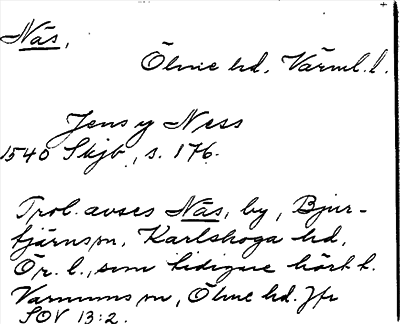 Näs,
Ölme hd. Värml. l.
Jens y Ness
1540 Skjb, s. 176.
Trol. avses Näs, by, Bjur-
tjärns sn, Karlskoga hd,
Ör. l., som tidigare hört t.
Varnums sn, Ölme hd. Jfr
SOV 13:2.